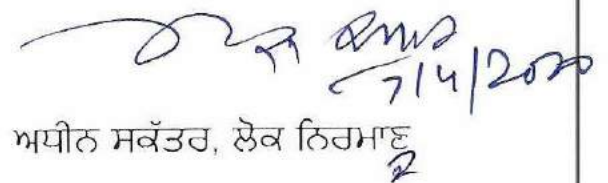 7/4/2020
ਅਧੀਨ ਸਕੱਤਰ, ਲੋਕ ਨਿਰਮਾਣ
2